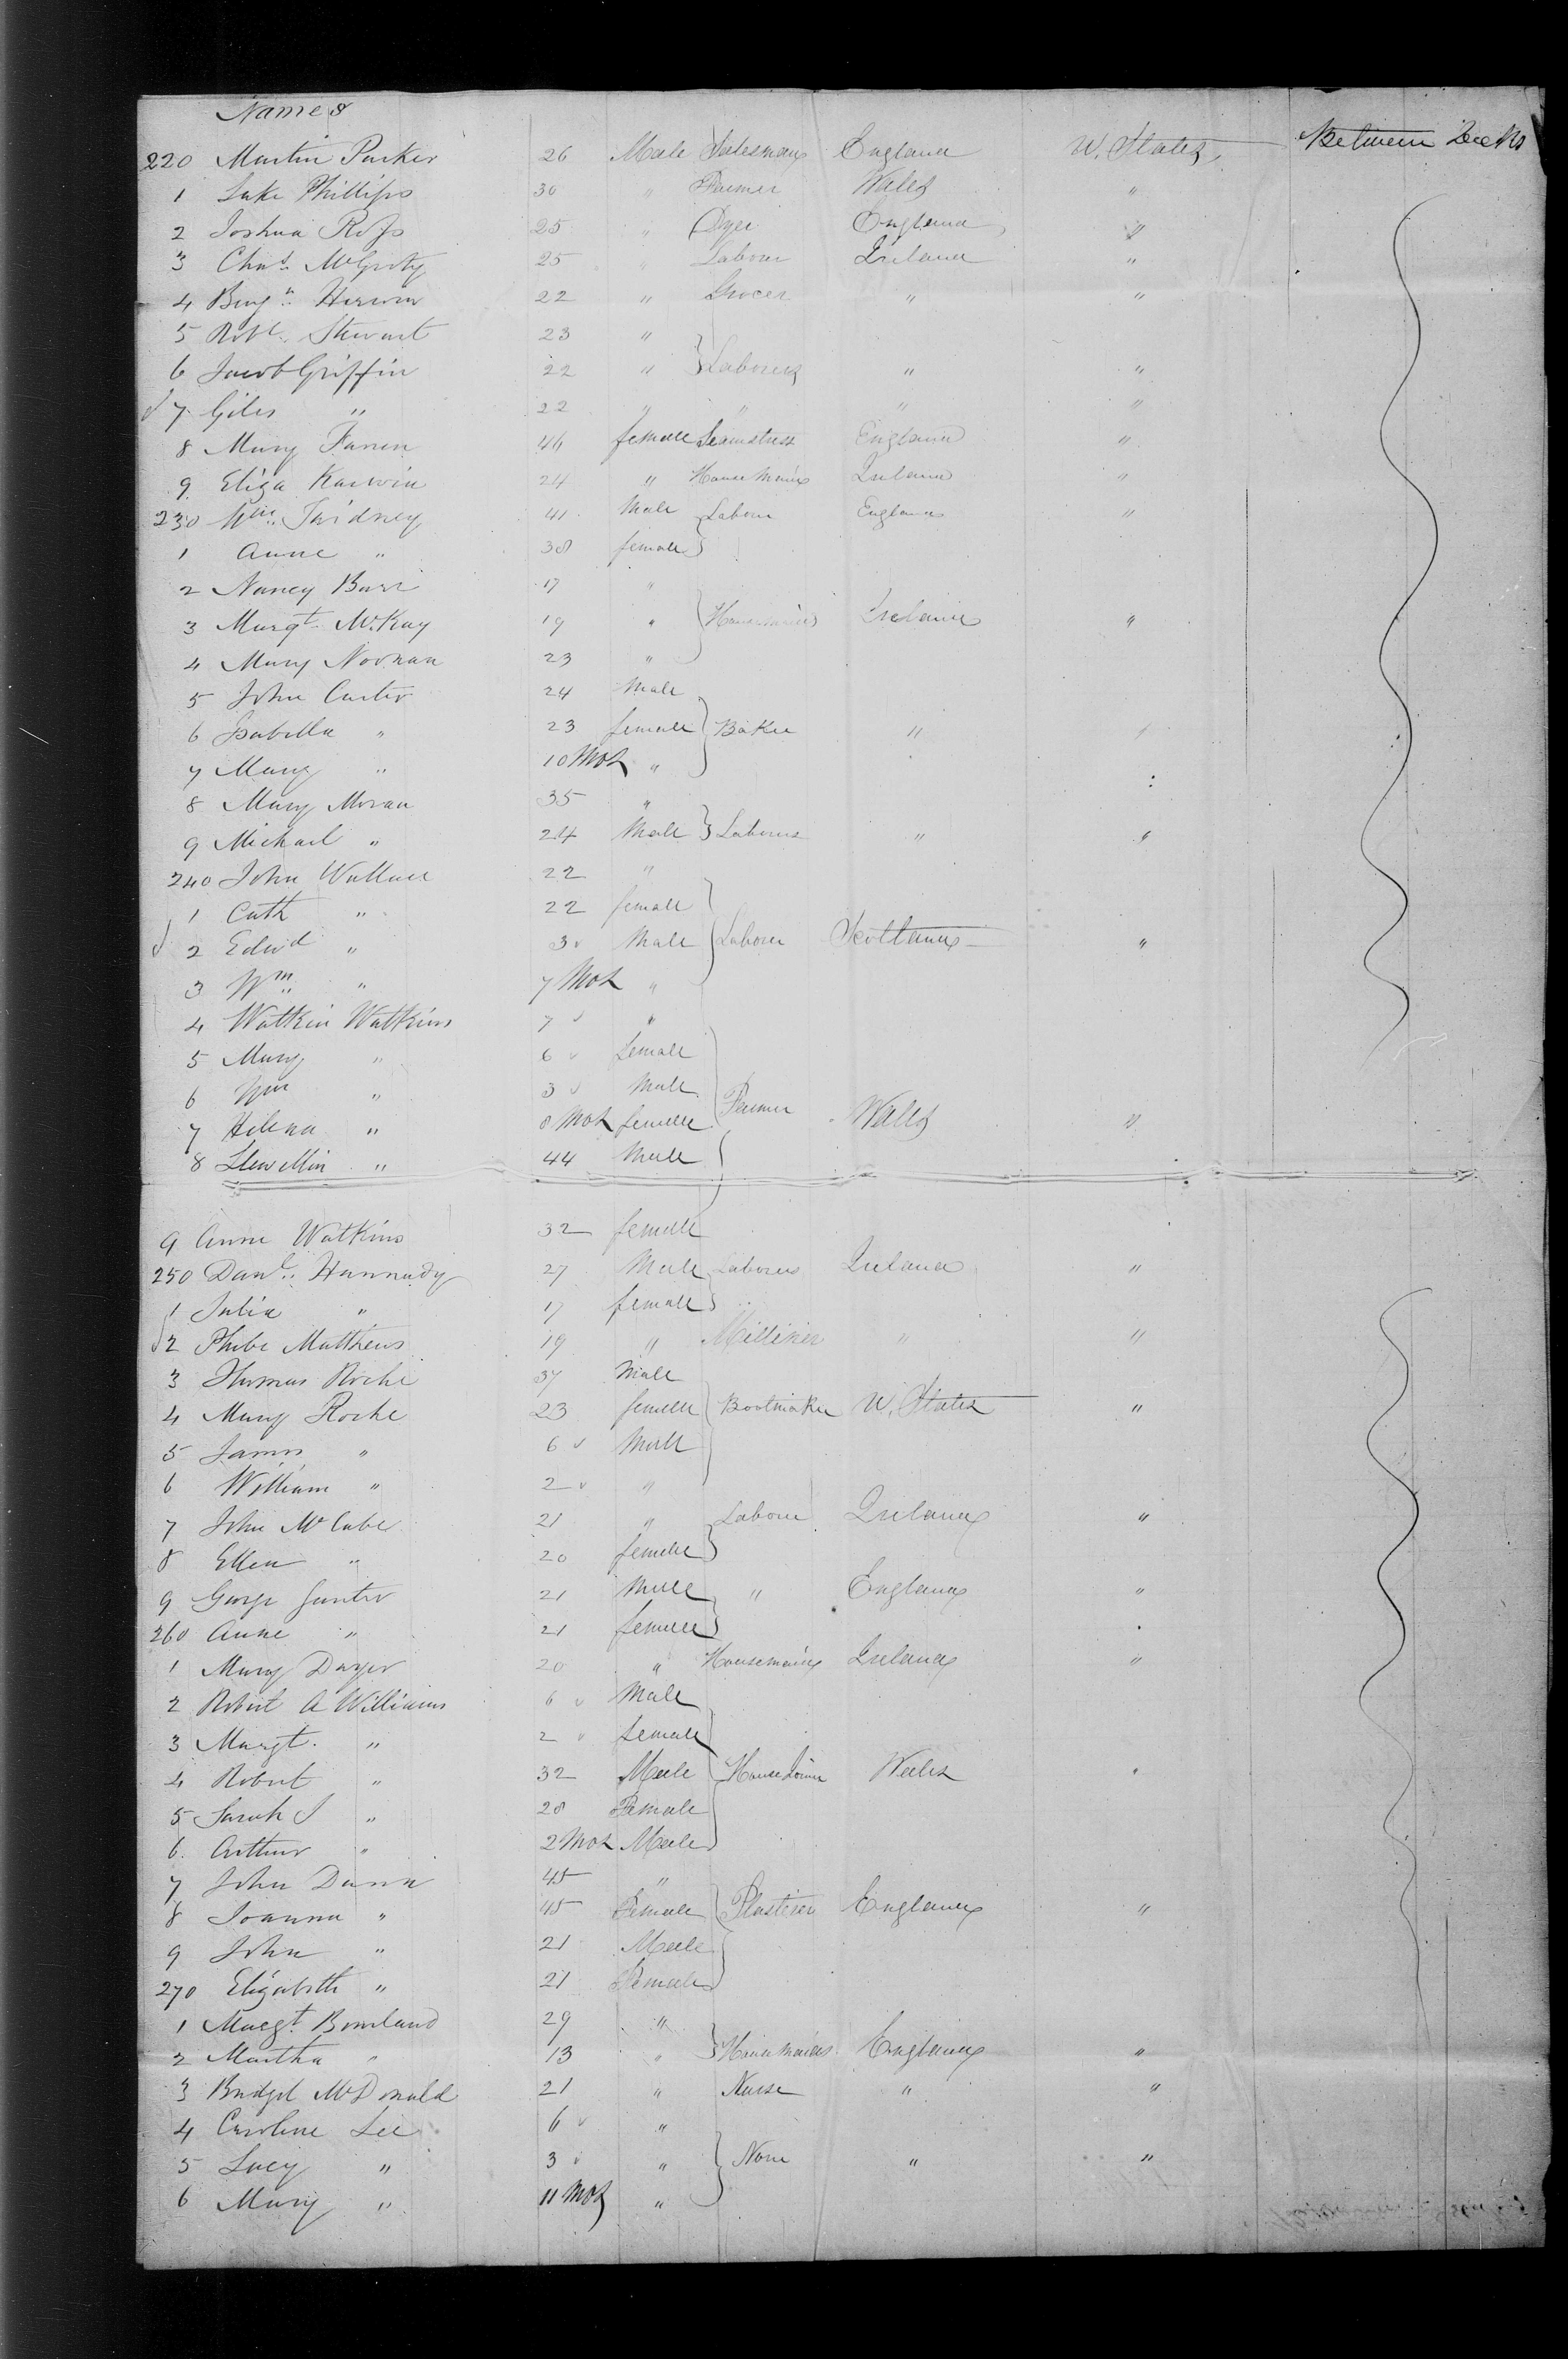 Names
220 Martin Parker 26 Male Salesman England U. States Between Decks
1 Luke Phillips 30 " Farmer Wales "
2 Joshua Ross 25 " Dyer England "
3 Chas. McGroty 25 " Labourer Ireland "
4 Benjn. 22 " Grocer " "
5 Robt. Stewart 23 "
6 Jacob Griffin 22 " Labourers " "
7 Giles " 22 " " " "
8 Mary 46 female Seamstress England "
9 Eliza 24 " House Maid Ireland "
230 Wm. 41 Male Labourer England "
1 Anne " 38 female
2 Nancy Barr 17 "
3 Margt. McKay 19 " Housemaids Ireland "
4 Mary Noonan 23 "
5 John Carter 24 Male
6 Isabella " 23 female Baker " "
7 Mary " 10 Mos "
8 Mary Moran 35 "
9 Michael " 24 Male Labourer " "
240 John Wallace 22 "
1 Cath " 22 female
2 Edwd " 3 Male Labourer Scotland "
3 Wm. " 7 Mos "
4 Watkin Watkins 7 "
5 Mary " 6 female
6 Wm " 3 Male
7 Helena " 8 Mos female Farmer Wales "
8 Llewellin " 44 Male
9 Anne Watkins 32 female
250 Danl. Hannady 27 Male Labourer Ireland "
1 Julia " 17 female
2 Phebe Matthews 19 " Milliner " "
3 Thomas Roche 37 Male
4 Mary Roche 23 female Bootmaker U. States "
5 James " 6 Male
6 William " 2 "
7 John McCabe 21 " Labourer Ireland "
8 Ellen " 20 female
9 George Gunter 21 Male " England "
260 Anne " 21 female
1 Mary Dwyer 20 " Housemaid Ireland "
2 Robert A Williams 6 Male
3 Margt. " 2 female
4 Robert " 32 Male House Joiner Wales "
5 Sarah J " 28 Female
6 Arthur " 2 Mos Male
7 John Dunn 45 "
8 Joanna " 45 Female Plasterer England "
9 John " 21 Male
270 Elizabeth " 21 Female
1 Margt. Bowland 29 "
2 Martha " 13 " Housemaids England "
3 Bridget McDonald 21 " Nurse " "
4 Caroline Lee 6 "
5 Lucy " 3 " None " "
6 Mary " 11 Mos "